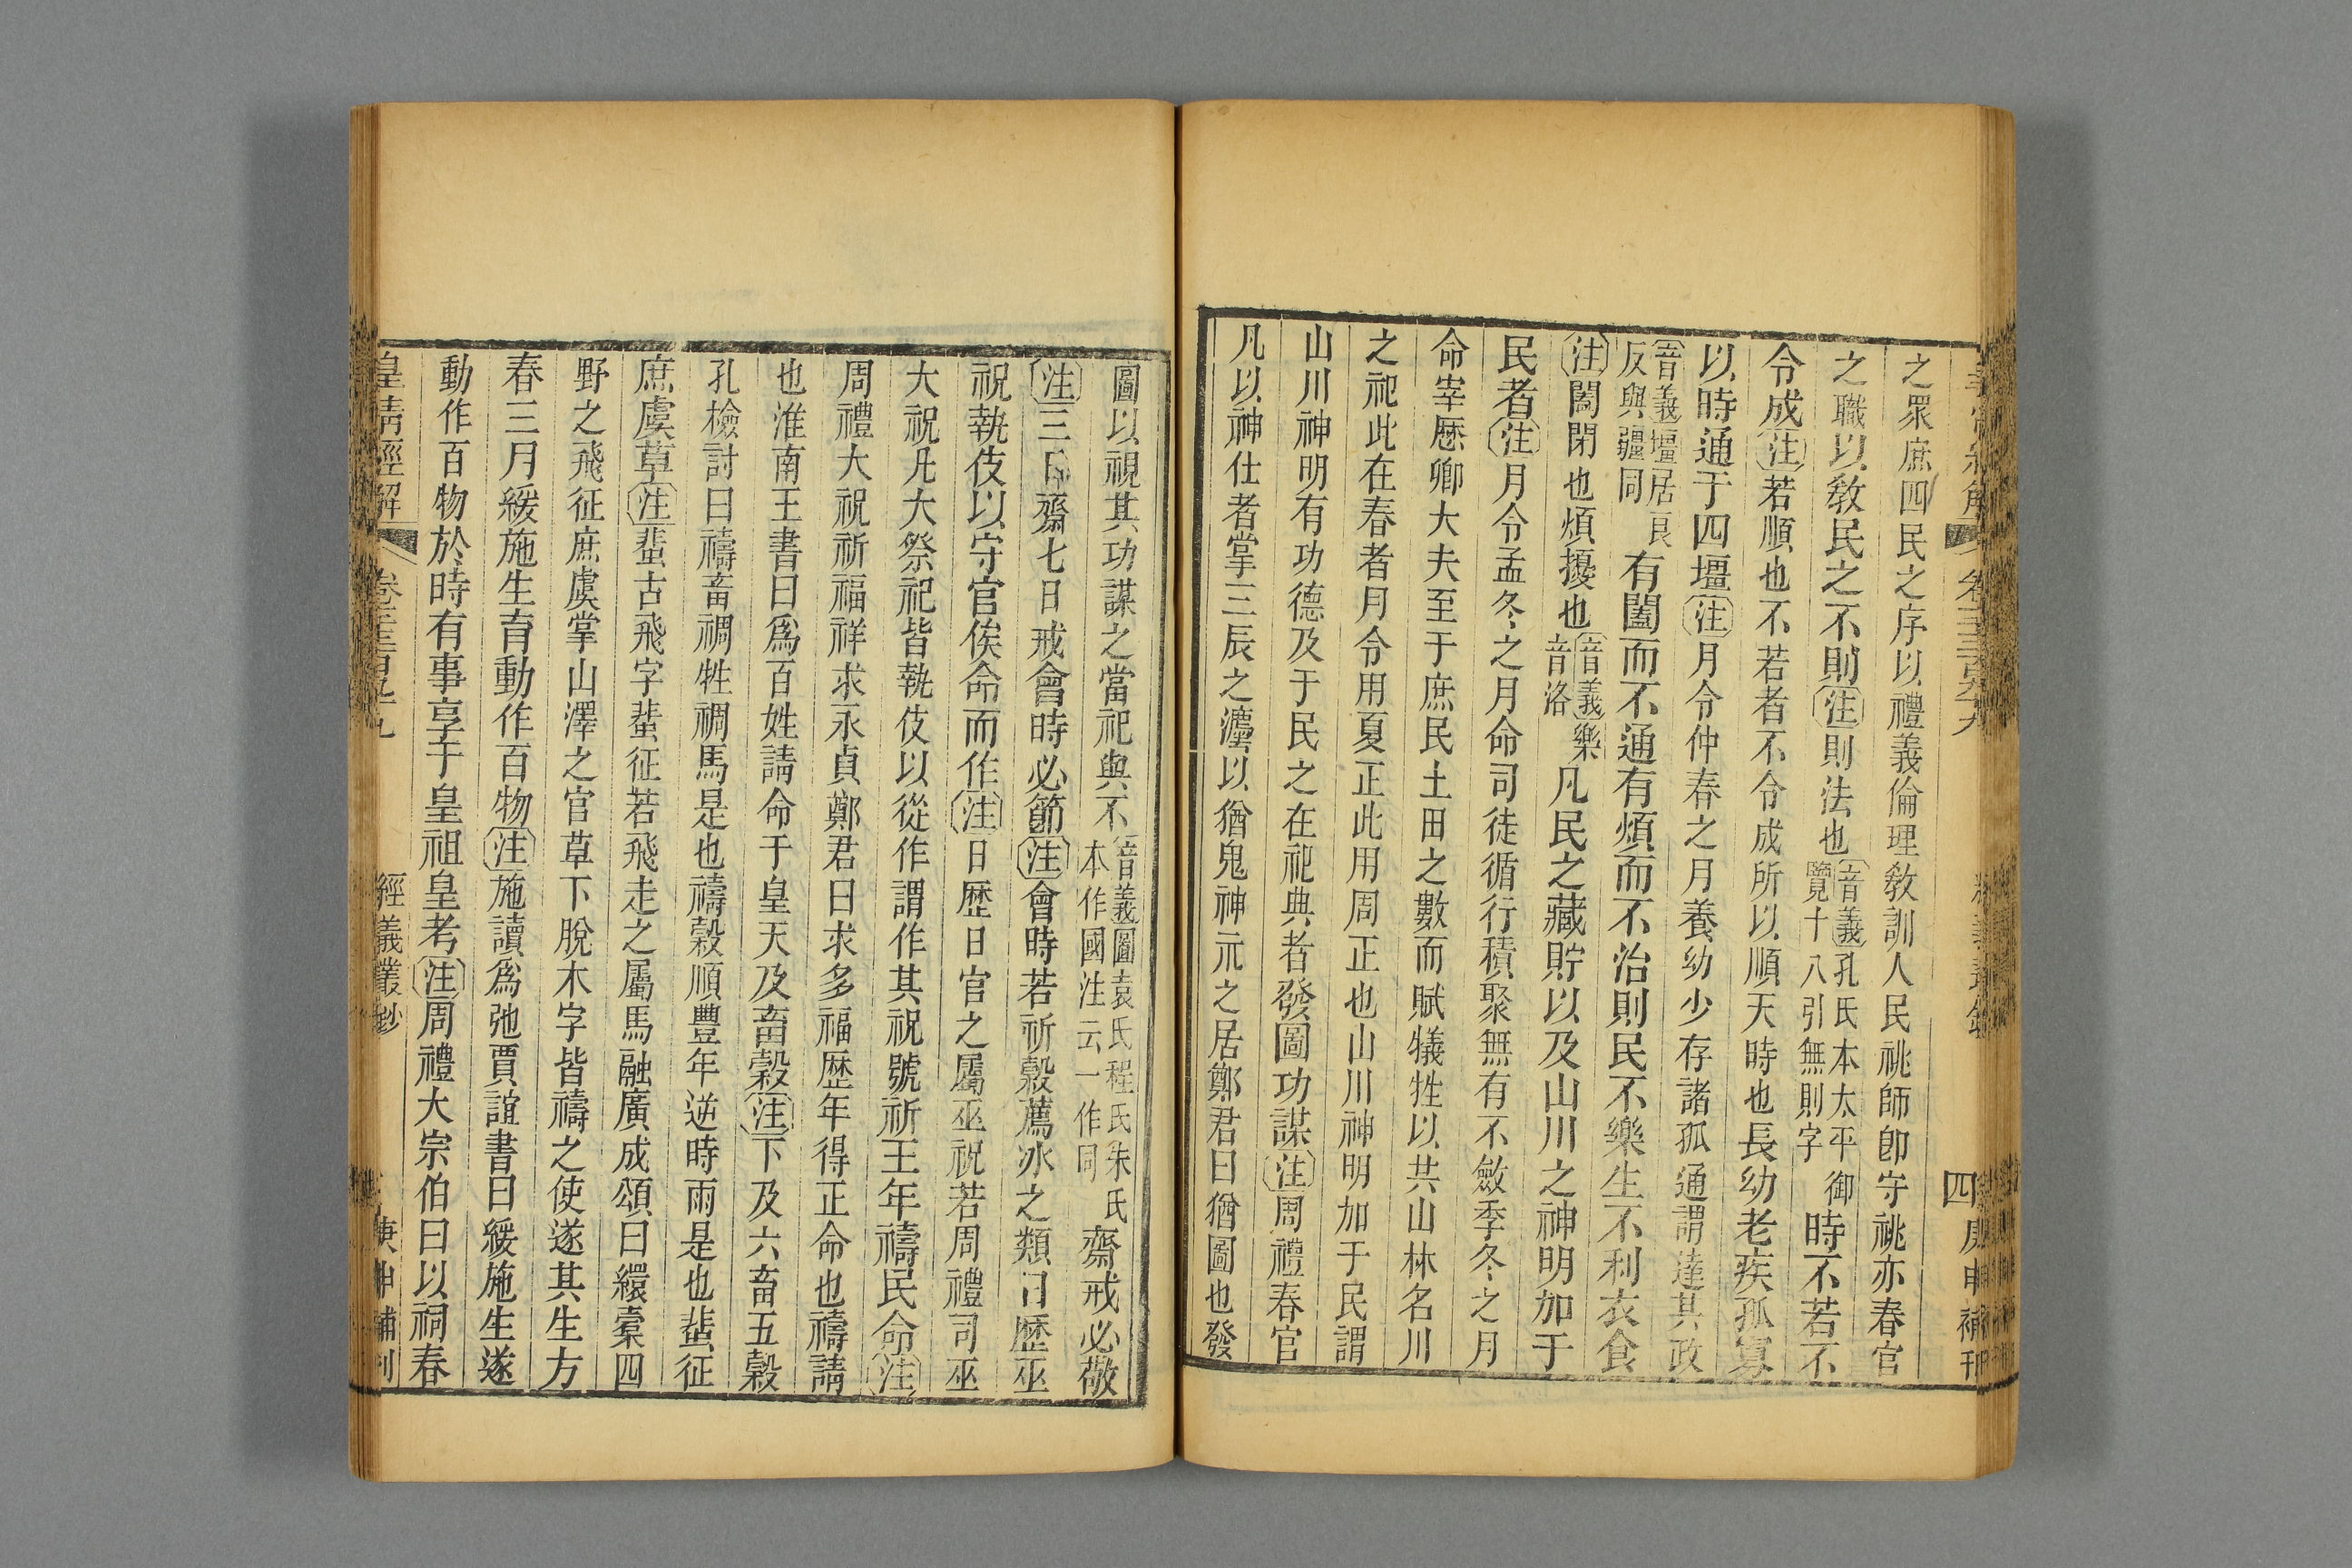 之眾庶四民之序以禮義倫理敎訓人民祧師卽守祧亦春官
之職以敎民之不則注則法也音義孔氏本太平御
覽十八引無則字時不若不
令成注若順也不若者不令成所以順天時也長幼老疾孤寡
以時通于四壃注月令仲春之月養幼少存諸孤通謂達其政
音義壃居良
反與疆同有闔而不通有煩而不治則民不樂生不利衣食
注闔閉也煩擾也音義樂
音洛凡民之藏貯以及山川之神明加于
民者注月令孟冬之月命司徒循行積聚無有不斂季冬之月
命宰歷卿大夫至于庶民土田之數而賦犧牲以共山林名川
之祀此在春者月令用夏正此用周正也山川神明加于民謂
山川神明有功德及于民之在祀典者發圖功謀注周禮春官
凡以神仕者掌三辰之灋以猶鬼神示之居鄭君曰猶圖也發
四 庚申補刊
圖以視其功謀之當祀與不音義圖袁氏程氏朱氏
本作國注云一作同齋戒必敬
注三日齋七日戒會時必節注會時若祈穀薦冰之類日歷巫
祝執伎以守官俟命而作注日歷日官之屬巫祝若周禮司巫
大祝凡大祭祀皆執伎以從作謂作其祝號祈王年禱民命注
周禮大祝祈福祥求永貞鄭君曰求多福歷年得正命也禱請
也淮南王書曰爲百姓請命于皇天及畜穀注下及六畜五穀
孔檢討曰禱畜禂牲禂馬是也禱穀順豐年逆時雨是也蜚征
庶虞草注蜚古飛字蜚征若飛走之屬馬融廣成頌曰繯橐四
野之飛征庶虞掌山澤之官草下脫木字皆禱之使遂其生方
春三月緩施生育動作百物注施讀爲弛賈誼書曰緩施生遂
動作百物於時有事享于皇祖皇考注周禮大宗伯曰以祠春
皇淸經解 經義叢鈔 庚申補刊